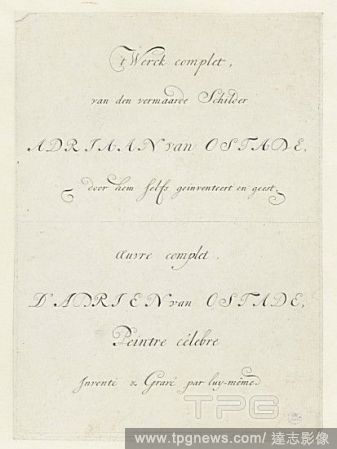 't Werck complet,
van den vermaarde Schilder
ADRIAAN van OSTADE,
door hem selfs geinventeert en geest.
Œuvre complet.
D'ADRIEN van OSTADE,
Peintre célebre
Inventé & Gravé par luy-même.
TPG
www.tpgnews.com/達志影像